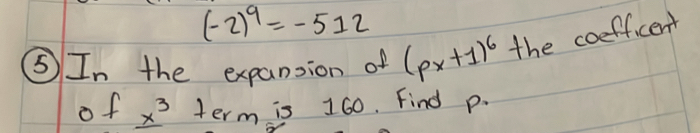 (-2)⁹ = -512
⑤ In the expansion of (px+1)⁶ the coefficent
of x³ term is 160. Find p.